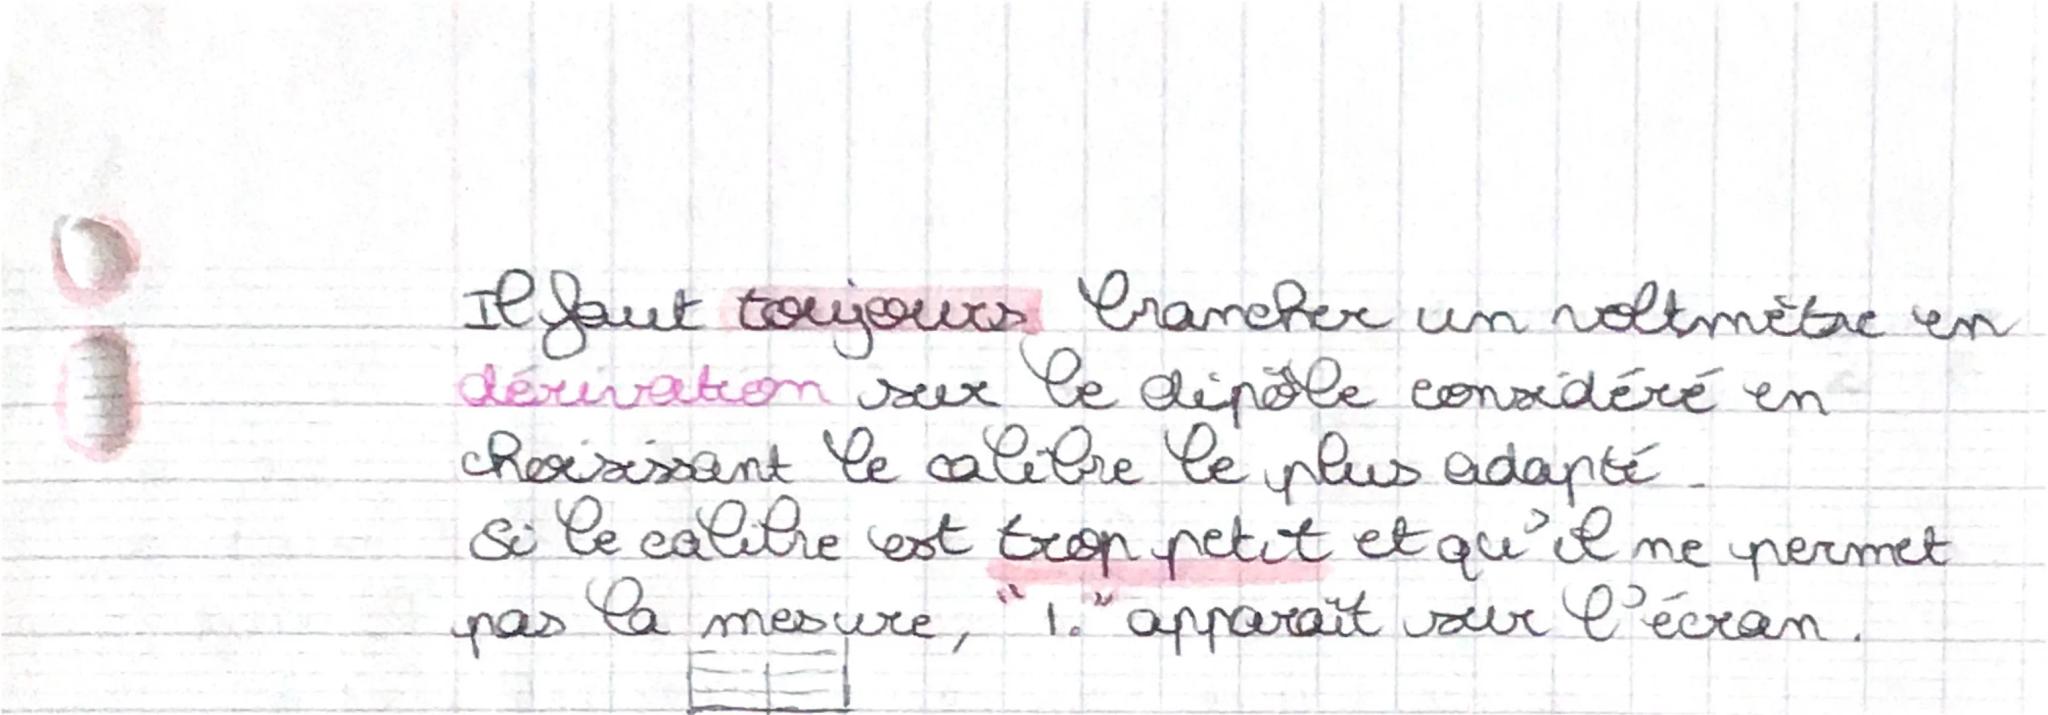 Il faut toujours brancher un voltmètre en
dérivation sur le dipôle considéré en
choisissant le calibre le plus adapté.
Si le calibre est trop petit et qu'il ne permet
pas la mesure, "1." apparaît sur l'écran.